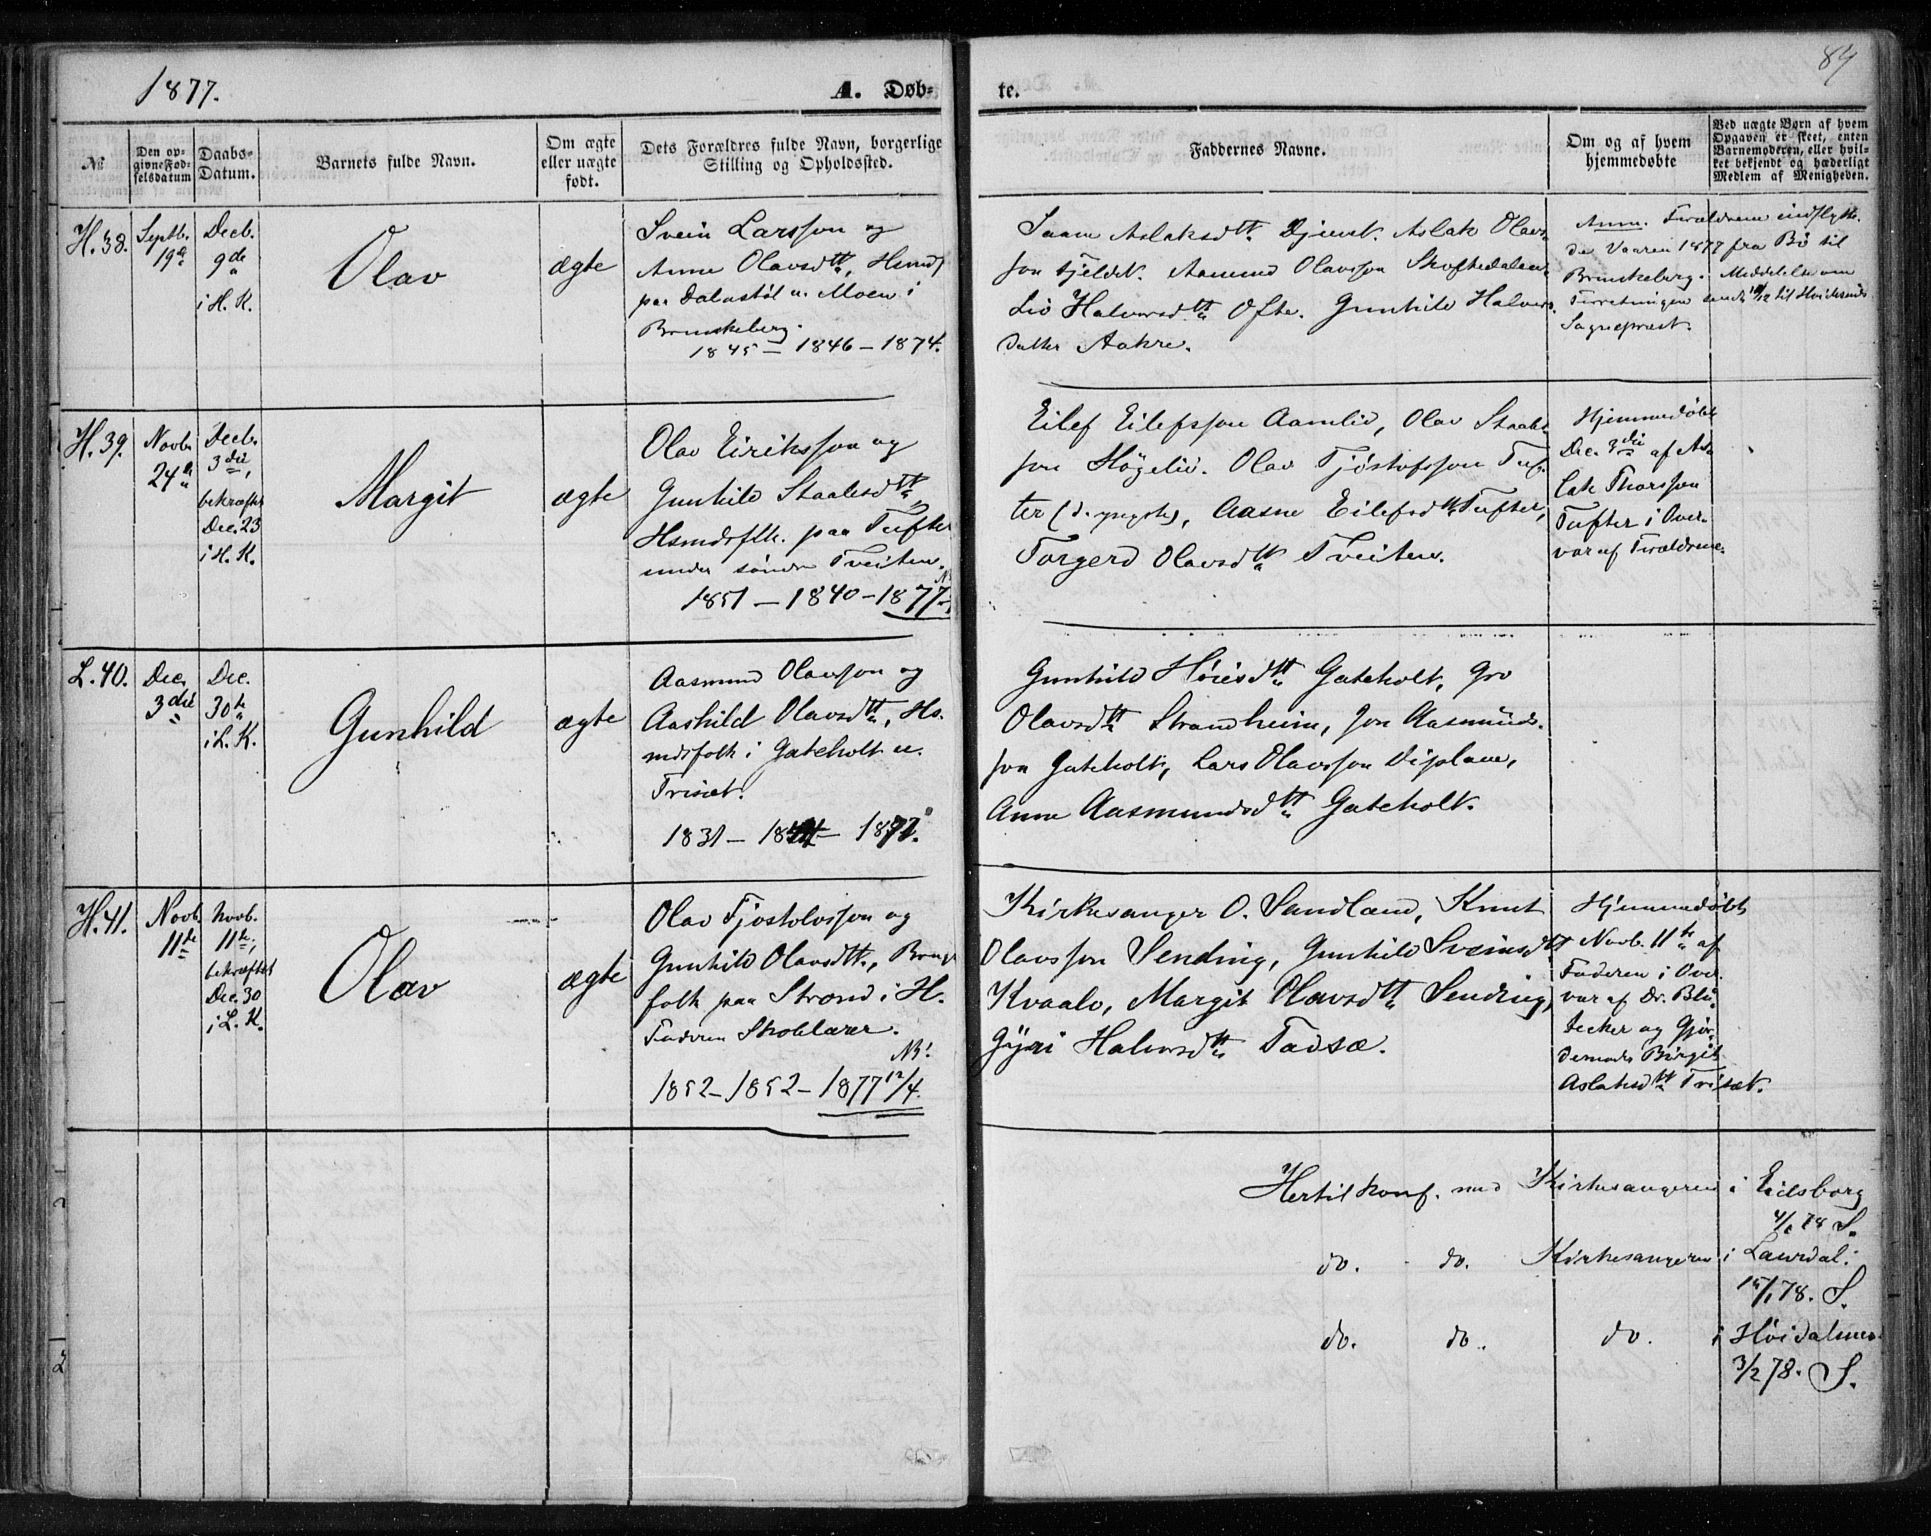 1877.
A. Døb-
te.
84
№
Den op-
givne Fød-
selsdatum
Daabs-
Datum.
Barnets fulde Navn.
Om ægte
eller uægte
født.
Dets Forældres fulde Navn, borgerlige
Stilling og Opholdssted.
Faddernes Navne.
Om og af hvem
hjemmedøbte
Ved uægte Børn af hvem
Opgaven er skeet, enten
Barnemoderen, eller hvil-
ket bekjendt og hæderligt
Medlem af Menigheden.
H. 38.
Septb.
19de
Decb.
9de
i H. K.
Olav
ægte
Svein Larsson og
Anne Olavsdtt., Hsmdf
paa Dalastøl u. Moen i
Brunkeberg.
1845 – 1846 – 1874.
Aslaksdtt. Aslak Olavs-
son Fjeldet. Aamund Olavsson Skoftedalen,
Liv Halvorsdtt. Ofte. Gunhild Halvors-
datter Aakre.
Anm. Forældrene indflytte-
de Vaaren 1877 fra Bø til
Brunkeberg. Meddelelse om
Forretningen sendt 10/12 til Hvideseids
Sogneprest.
H. 39.
Novb.
24de
Decb.
3die,
bekræftet
Dec. 23
i H. K.
Margit
ægte
Olav Eiriksson og
Gunhild Staalesdtt.,
Hsmdsflk. paa Tufter
under søndre Tveiten.
1851 – 1840 – 1877
Eilef Eilefsson Aamlid, Olav Staales-
son Høgelid. Olav Tjøstofsson Tuf-
ter (d. yngste), Aasne Eilefsdtt. Tufter,
Torgerd Olavsdtt. Tveiten.
Hjemmedøbt
Dec. 3die af As-
lak Thorsson
Tufter i Over-
vær af Forældrene.
L. 40.
Dec.
3die
Dec.
30te
i L. K.
Gunhild
ægte
Aasmund Olavsson og
Aashild Olavsdtt., Hs-
mdsfolk i Gateholt u.
Trisæt.
1831 – – 1871.
Gunhild Høiesdtt. Gateholt, Gro
Olavsdtt. Strandheim, Jon Aasmunds-
son Gateholt, Lars Olavsson Diplane,
Anne Aasmundsdtt. Gateholt.
H. 41.
Novb.
11te
Novb.
11te,
bekræftet
Dec. 30
i L. K.
Olav
ægte
Olav Tjostolvsson og
Gunhild Olavsdtt., Brugs-
folk paa Strond i H.
Faderen Skolelærer.
NB!
1852 – 1852 – 1877 12/4.
Kirkesanger O. Sandland, Knut
Olavsson Sending, Gunhild Sveinsdtt.
Kvaale, Margit Olavsdtt. Sending,
Gyri Halvorsdtt. Tadsæ.
Hjemmedøbt
Novb. 11te af
Faderen i Over-
vær af Dr. Blü-
decker og Gjor-
demoder Birgit
Aslaksdtt. Trisæt.
Hertil konf. med Kirkesangeren i Eidsborg
4/1 78 S.
do. do. Kirkesangeren i Laurdal.
15/1 78. S.
do. do. do. i Høidalsmo
3/2 78. S.